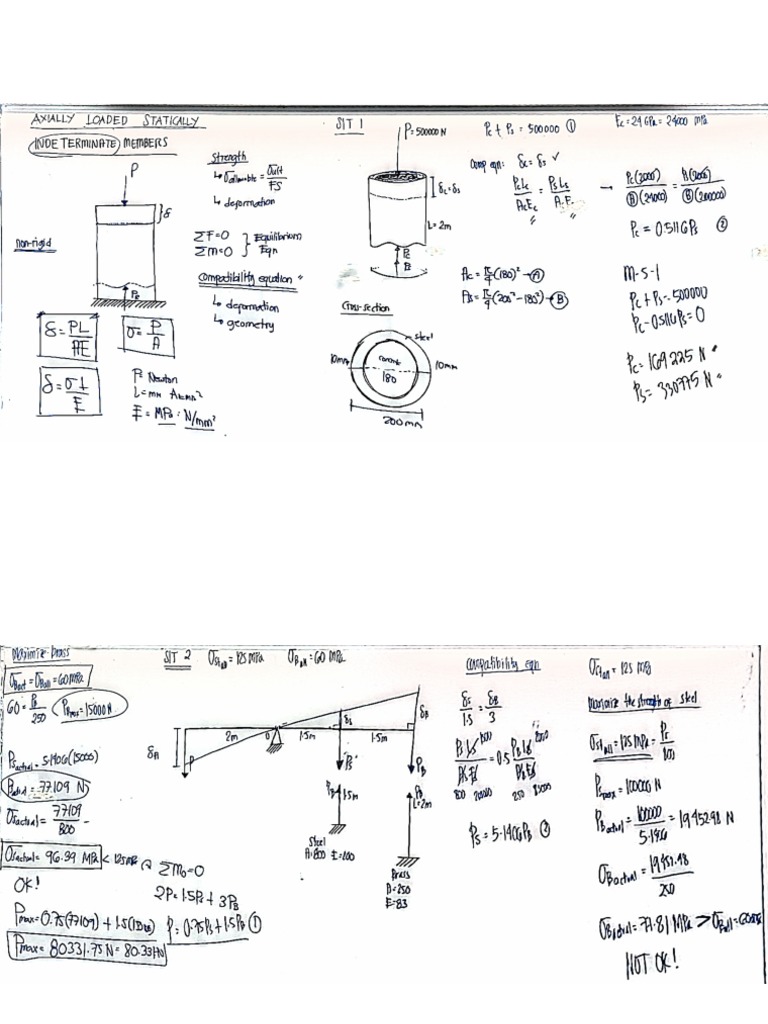 AXIALLY LOADED STATICALLY
INDETERMINATE MEMBERS
P
δ
non-rigid
δ = PL/AE
σ = P/A
δ = σL/E
P = Newton
L = mm A = mm²
E = MPa : N/mm²
Strength
↳ σallowable = σult/FS
↳ deformation
ΣF=0
Σm=0
} Equilibrium Eqn
Compatibility equation
↳ deformation
↳ geometry
SIT 1
P = 500000 N
δc = δs
L = 2m
Pc
Ps
Cross-section
steel
concrete
180
10mm
10mm
200mm
Pc + Ps = 500000 ①
Comp eqn: δc = δs ✓
PcLc/AcEc = PsLs/AsEs
" "
Ac = π/4(180)² → Ⓐ
As = π/4(200² - 180²) → Ⓑ
Ec = 24 GPa = 24000 MPa
→ Pc(2000)/Ⓐ(24000) = Ps(2000)/Ⓑ(200000)
Pc = 0.5116Ps ②
m-5-1
Pc + Ps = 500000
Pc - 0.5116Ps = 0
Pc = 169 225 N
Ps = 330775 N
Maximize brass
σBact = σBall = 60 MPa
60 = PB/250
PBmax = 15000 N
Psactual = 5.1406(15000)
Psactual = 77109 N
σsactual = 77109/800
σsactual = 96.39 MPa < 125 MPa
OK!
Pmax = 0.75(77109) + 1.5(15000)
Pmax = 80331.75 N = 80.33 kN
SIT 2
σst all = 125 MPa
σB all = 60 MPa
δA
2m
O
1.5m
1.5m
δs
δB
P
Ps
PB
1.5m
PB
L=2m
Steel
A=800 E=200
Brass
A=250
E=83
ΣMo = 0
2P = 1.5Ps + 3PB
P = 0.75Ps + 1.5PB ①
Compatibility eqn
δs/1.5 = δB/3
Ps = 5.1406PB ②
σst all = 125 MPa
Maximize the strength of steel
σst all = 125 MPa = Ps/800
Psmax = 100000 N
PBactual = 100000/5.1406 = 19452.98 N
σBactual = 19452.98/250
σBactual = 77.81 MPa > σBall = 60 MPa
NOT OK!